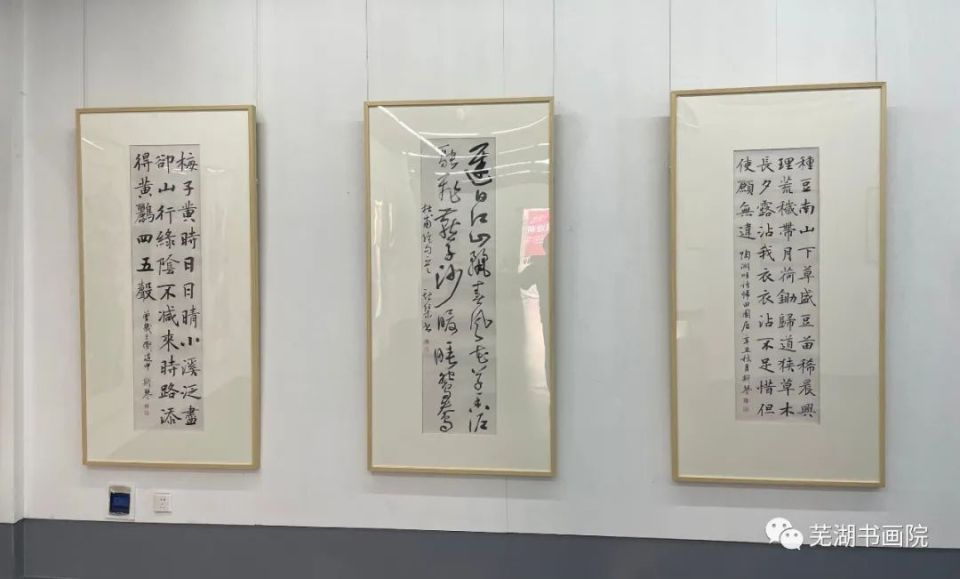 梅子黄時日日晴小溪泛盡
卻山行綠陰不減來時路添
得黄鸝四五聲
曾幾三衢道中
遲日江山麗春風花草香泥
融飛燕子沙暖睡鴛鴦
杜甫絕句
種豆南山下草盛豆苗稀晨興
理荒穢帶月荷鋤歸道狹草木
長夕露沾我衣衣沾不足惜但
使願無違
陶淵明詩歸田園居
芜湖书画院